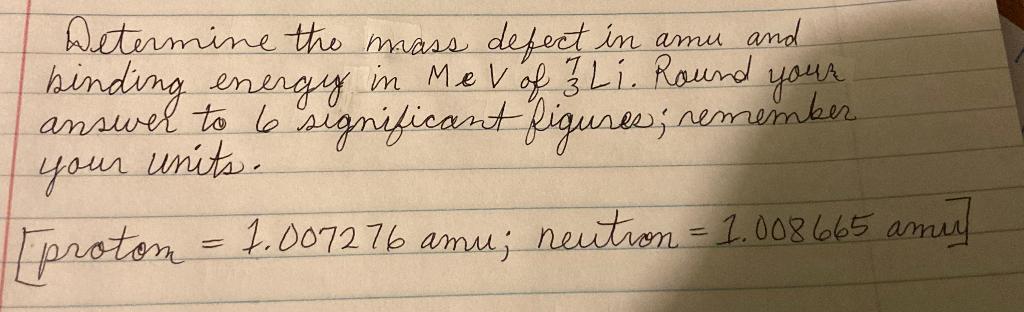 Determine the mass defect in amu and
binding energy in MeV of ⁷₃Li. Round your
answer to 6 significant figures; remember
your units.
[proton = 1.007276 amu; neutron = 1.008665 amu]